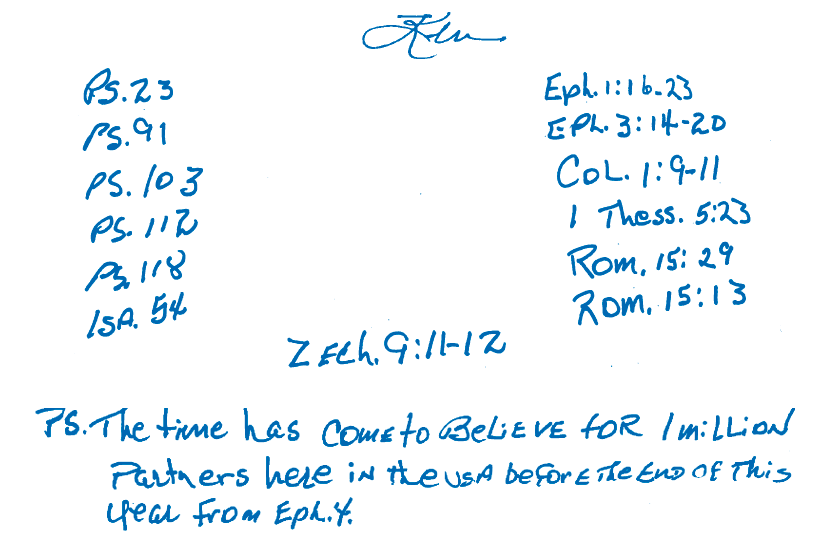 Ken
PS.23
PS.91
PS. 103
PS. 112
PS. 118
ISA. 54
Eph. 1:16-23
EPh. 3:14-20
CoL. 1:9-11
1 Thess. 5:23
Rom. 15:29
Rom. 15:13
ZECh. 9:11-12
PS. The time has COME to BELIEVE FOR 1 miLLION
Partners here iN the USA beforE The End OF This
year from Eph.4.